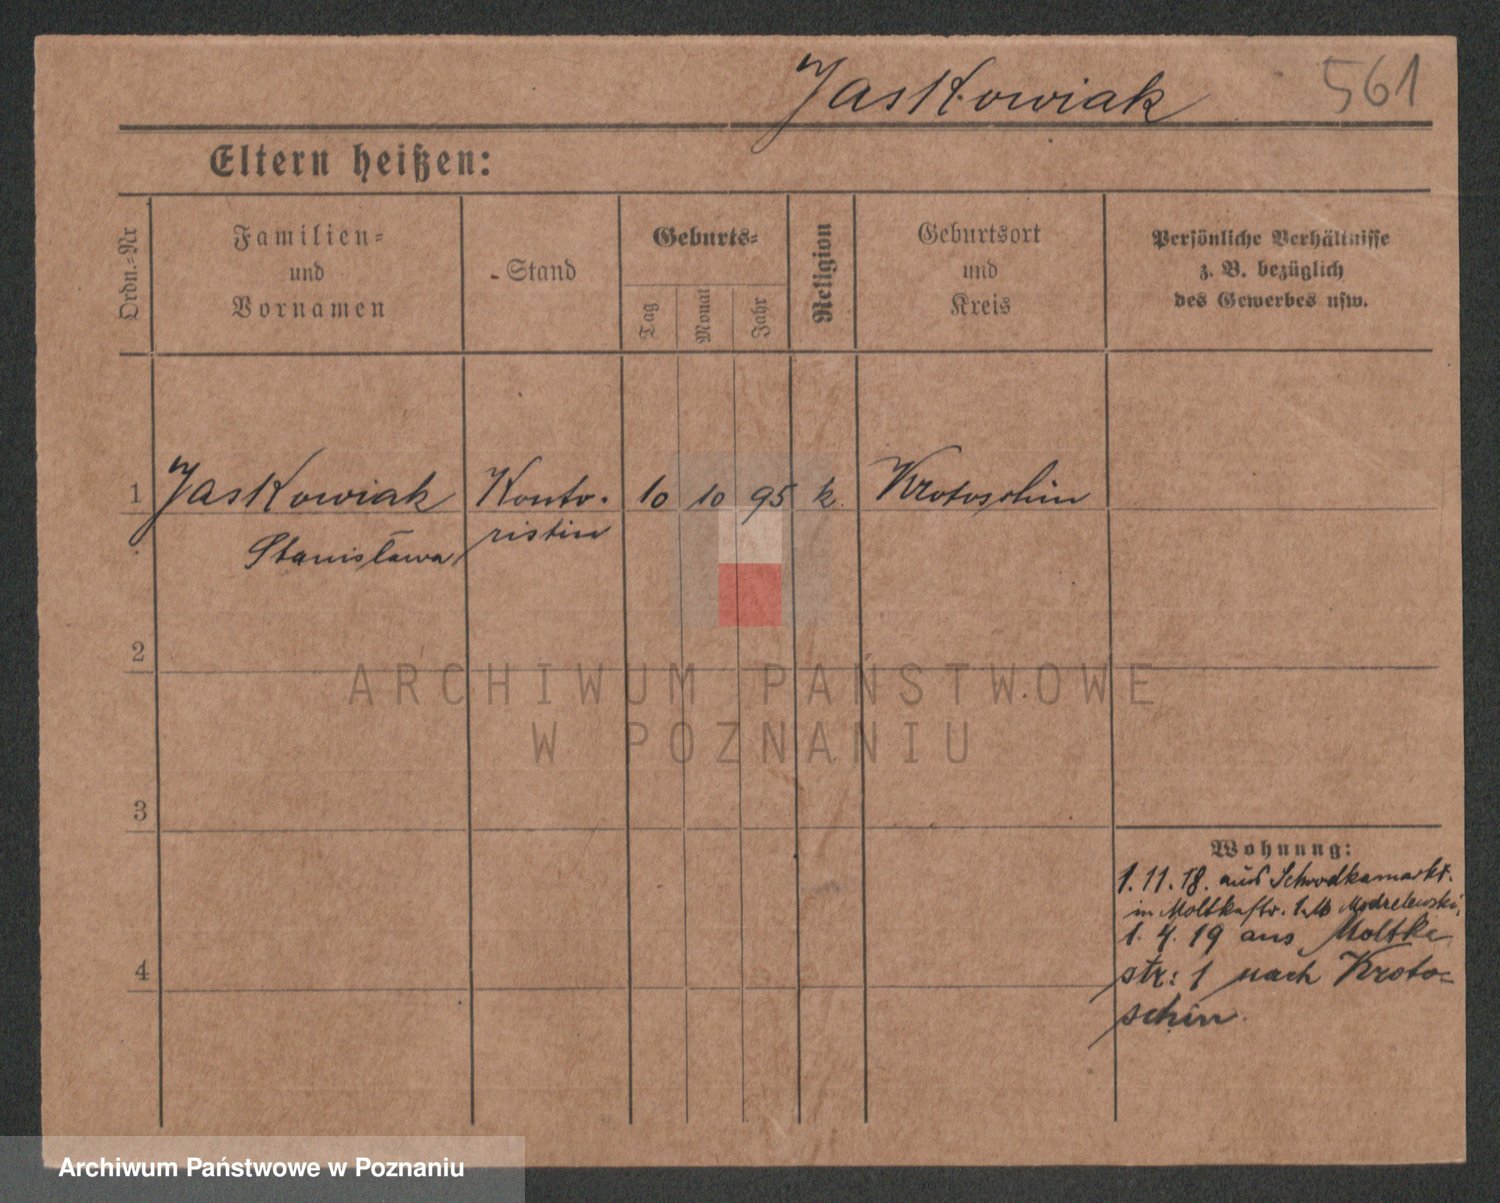 Jaskowiak 561
Eltern heißen:
Ordn.-Nr
Familien-
und
Vornamen
Stand
Geburts-
Tag
Monat
Jahr
Religion
Geburtsort
und
Kreis
Persönliche Verhältnisse
z. B. bezüglich
des Gewerbes usw.
1 Jaskowiak Konto- 10 10 95 k. Krotoschin
Stanisława ristin
2
ARCHIWUM PAŃSTWOWE
W POZNANIU
3
Wohnung:
1.11.18. aus Schrodkamarkt.
in 1 b Modrelewski,
1. 4. 19 aus Moltke
4
str: 1 nach Kroto-
schin.
Archiwum Państwowe w Poznaniu